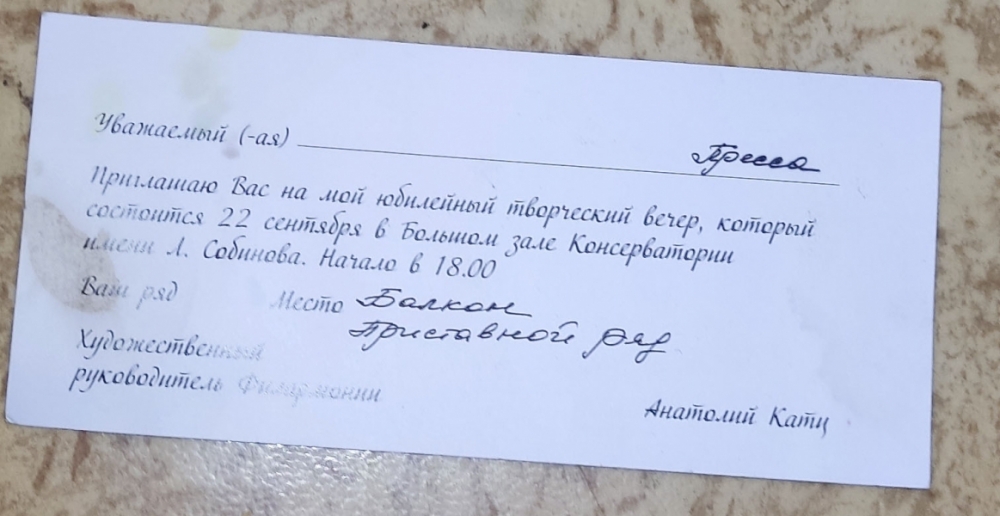 Уважаемый (-ая) Пресса
Приглашаю Вас на мой юбилейный творческий вечер, который
состоится 22 сентября в Большом зале Консерватории
имени Л. Собинова. Начало в 18.00
Ваш ряд Место Балкон
Приставной ряд
Художественный
руководитель Филармонии
Анатолий Катц